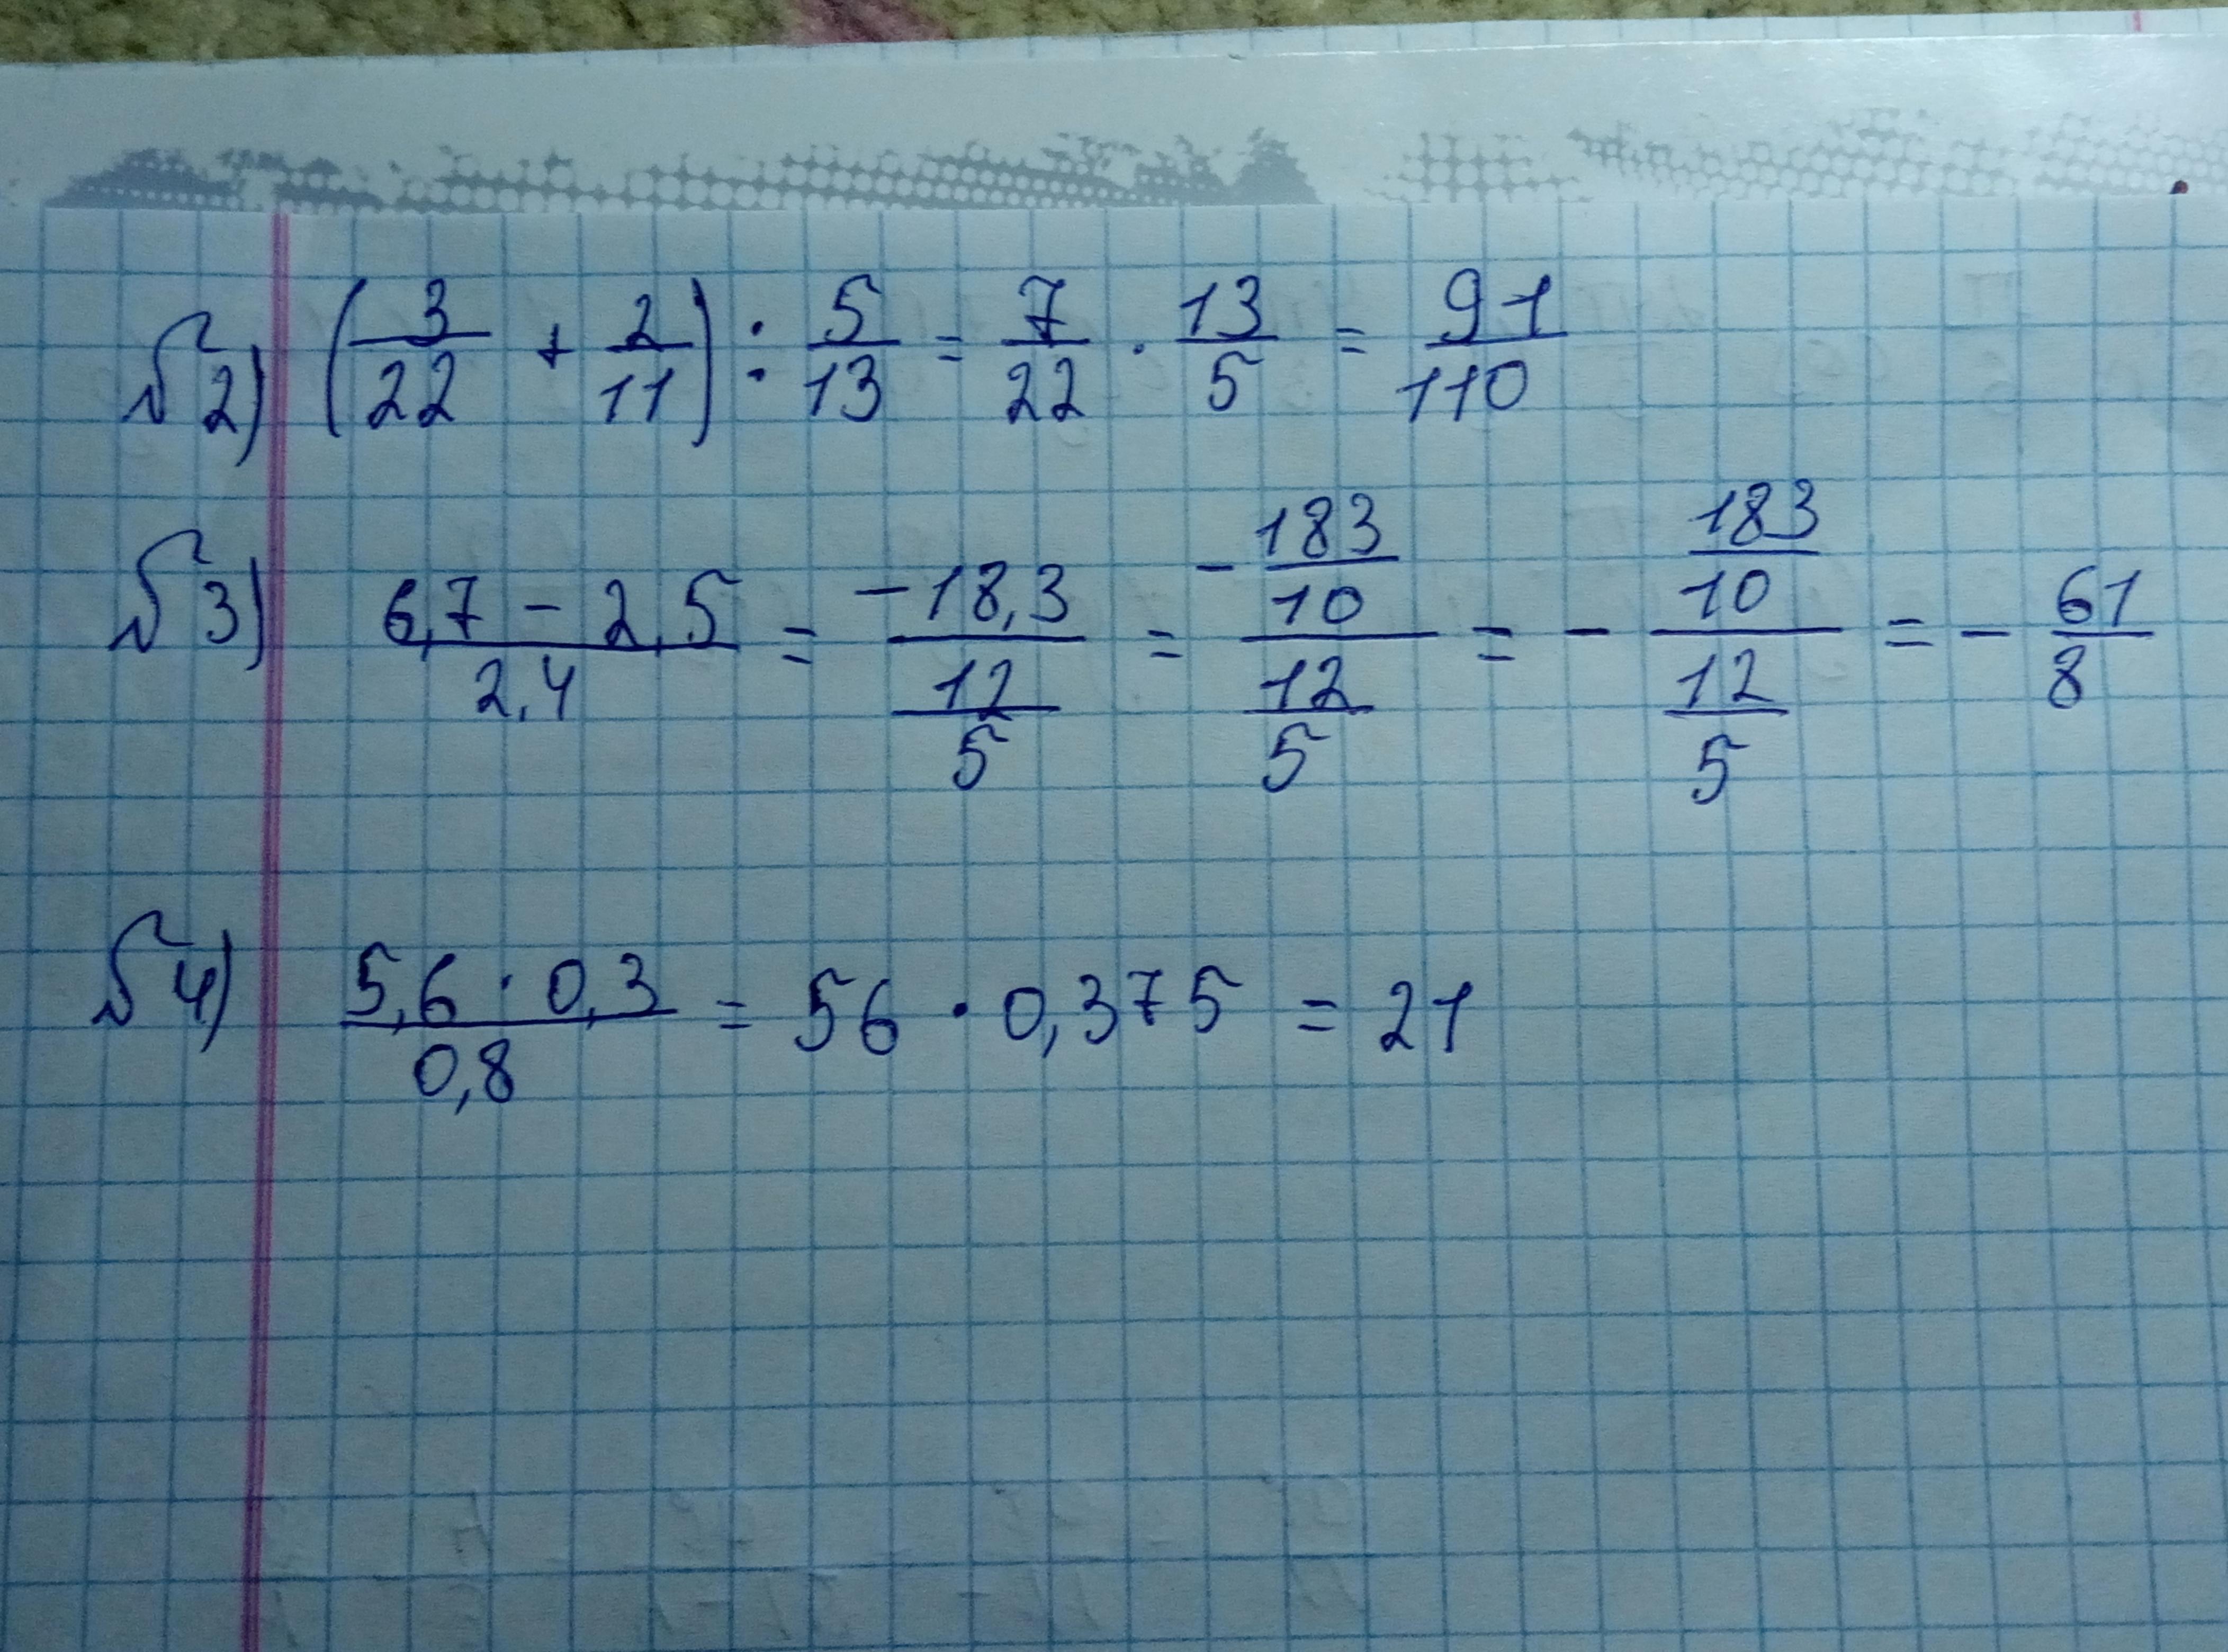 №2) (3/22 + 2/11) : 5/13 = 7/22 · 13/5 = 91/110
№3) (6,7 - 2,5)/2,4 = -18,3/(12/5) = -(183/10)/(12/5) = -(183/10)/(12/5) = -61/8
№4) (5,6 · 0,3)/0,8 = 56 · 0,375 = 21